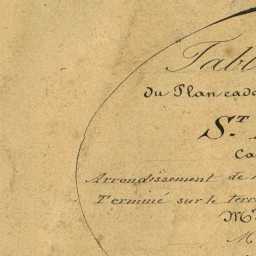 Tabl
du Plan cada
S.T
Ca
Arrondissement de
Terminé sur le terr
M.
M